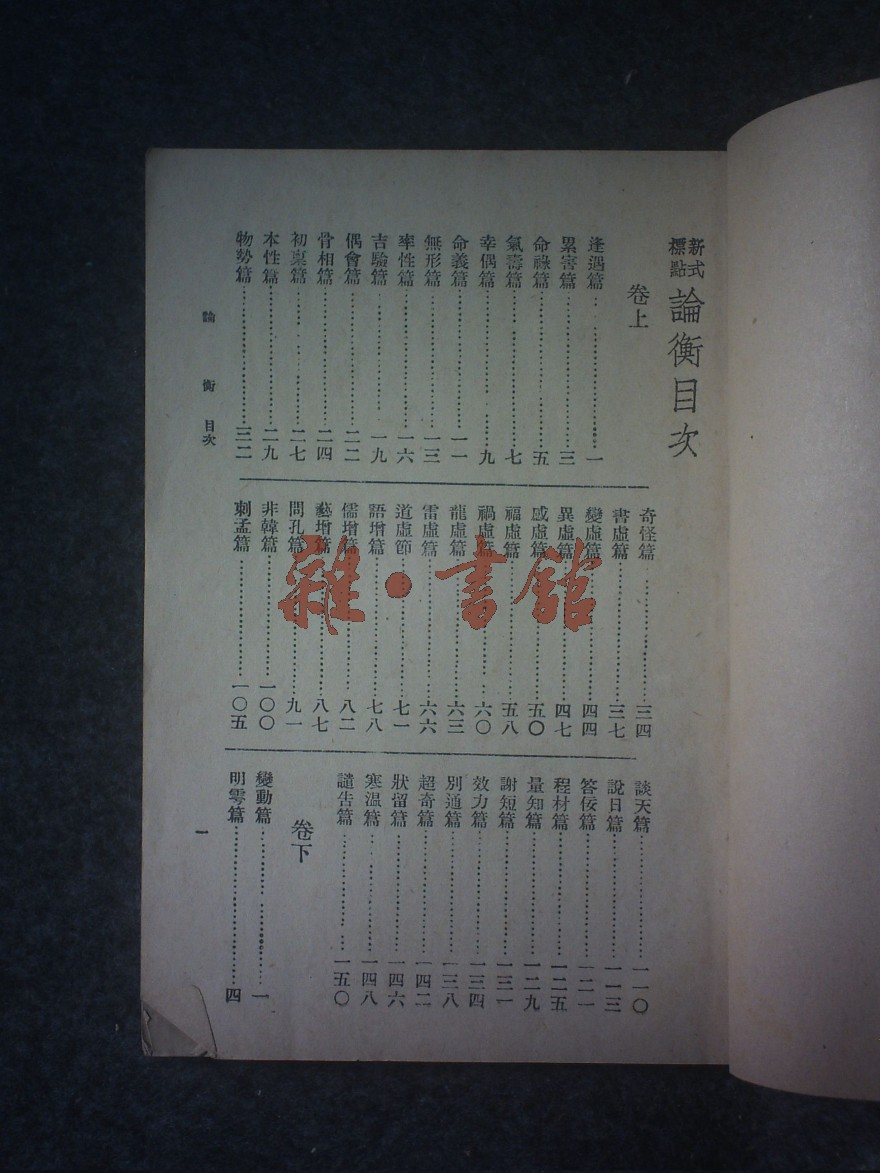 新式標點 論衡目次
卷上
逢遇篇……一
累害篇……三
命祿篇……五
氣壽篇……七
幸偶篇……九
命義篇……一一
無形篇……一三
率性篇……一六
吉驗篇……一九
偶會篇……二二
骨相篇……二四
初稟篇……二七
本性篇……二九
物勢篇……三二
奇怪篇……三四
書虛篇……三七
變虛篇……四四
異虛篇……四七
感虛篇……五〇
福虛篇……五八
禍虛篇……六〇
龍虛篇……六三
雷虛篇……六六
道虛節……七一
語增篇……七八
儒增篇……八二
藝增篇……八七
問孔篇……九一
非韓篇……一〇〇
刺孟篇……一〇五
談天篇……一一〇
說日篇……一一三
答佞篇……一二一
程材篇……一二五
量知篇……一二九
謝短篇……一三一
效力篇……一三四
別通篇……一三八
超奇篇……一四二
狀留篇……一四六
寒温篇……一四八
譴告篇……一五〇
卷下
變動篇……一
明雩篇……四
論衡 目次
一
雜·書館